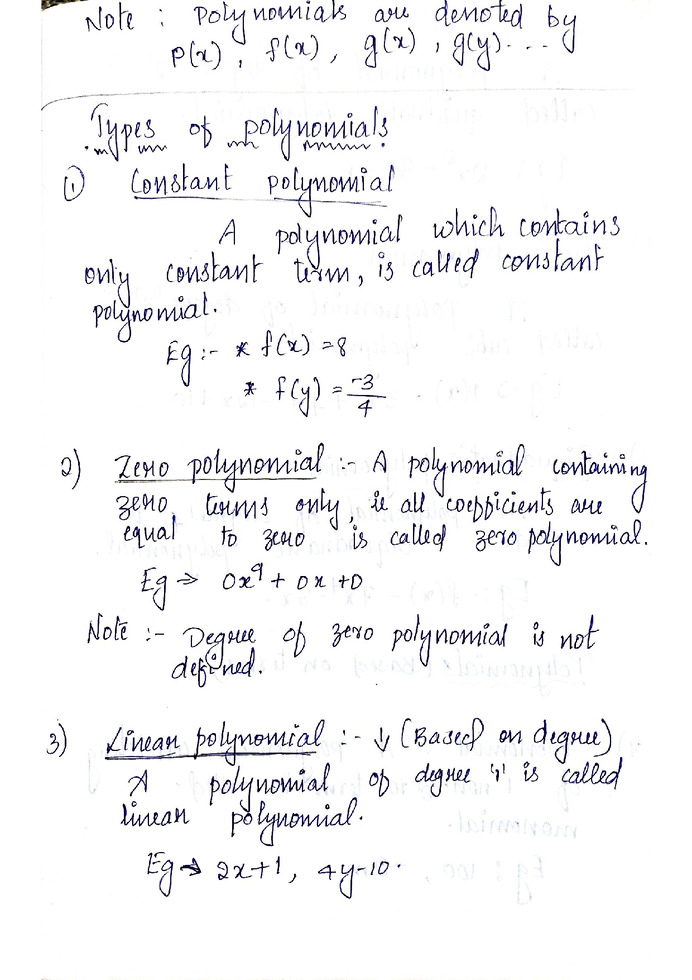 Note : Polynomials are denoted by
P(x), f(x), g(x), g(y)....
Types of polynomials
① Constant polynomial
A polynomial which contains
only constant term, is called constant
polynomial.
Eg :- * f(x) = 8
* f(y) = -3/4
2) Zero polynomial :- A polynomial containing
zero terms only, ie all coefficients are
equal to zero is called zero polynomial.
Eg → 0x⁹ + 0x + 0
Note :- Degree of zero polynomial is not
defined.
3) Linear polynomial :- ↓ (Based on degree)
A polynomial of degree '1' is called
linear polynomial.
Eg → 2x+1, 4y-10.